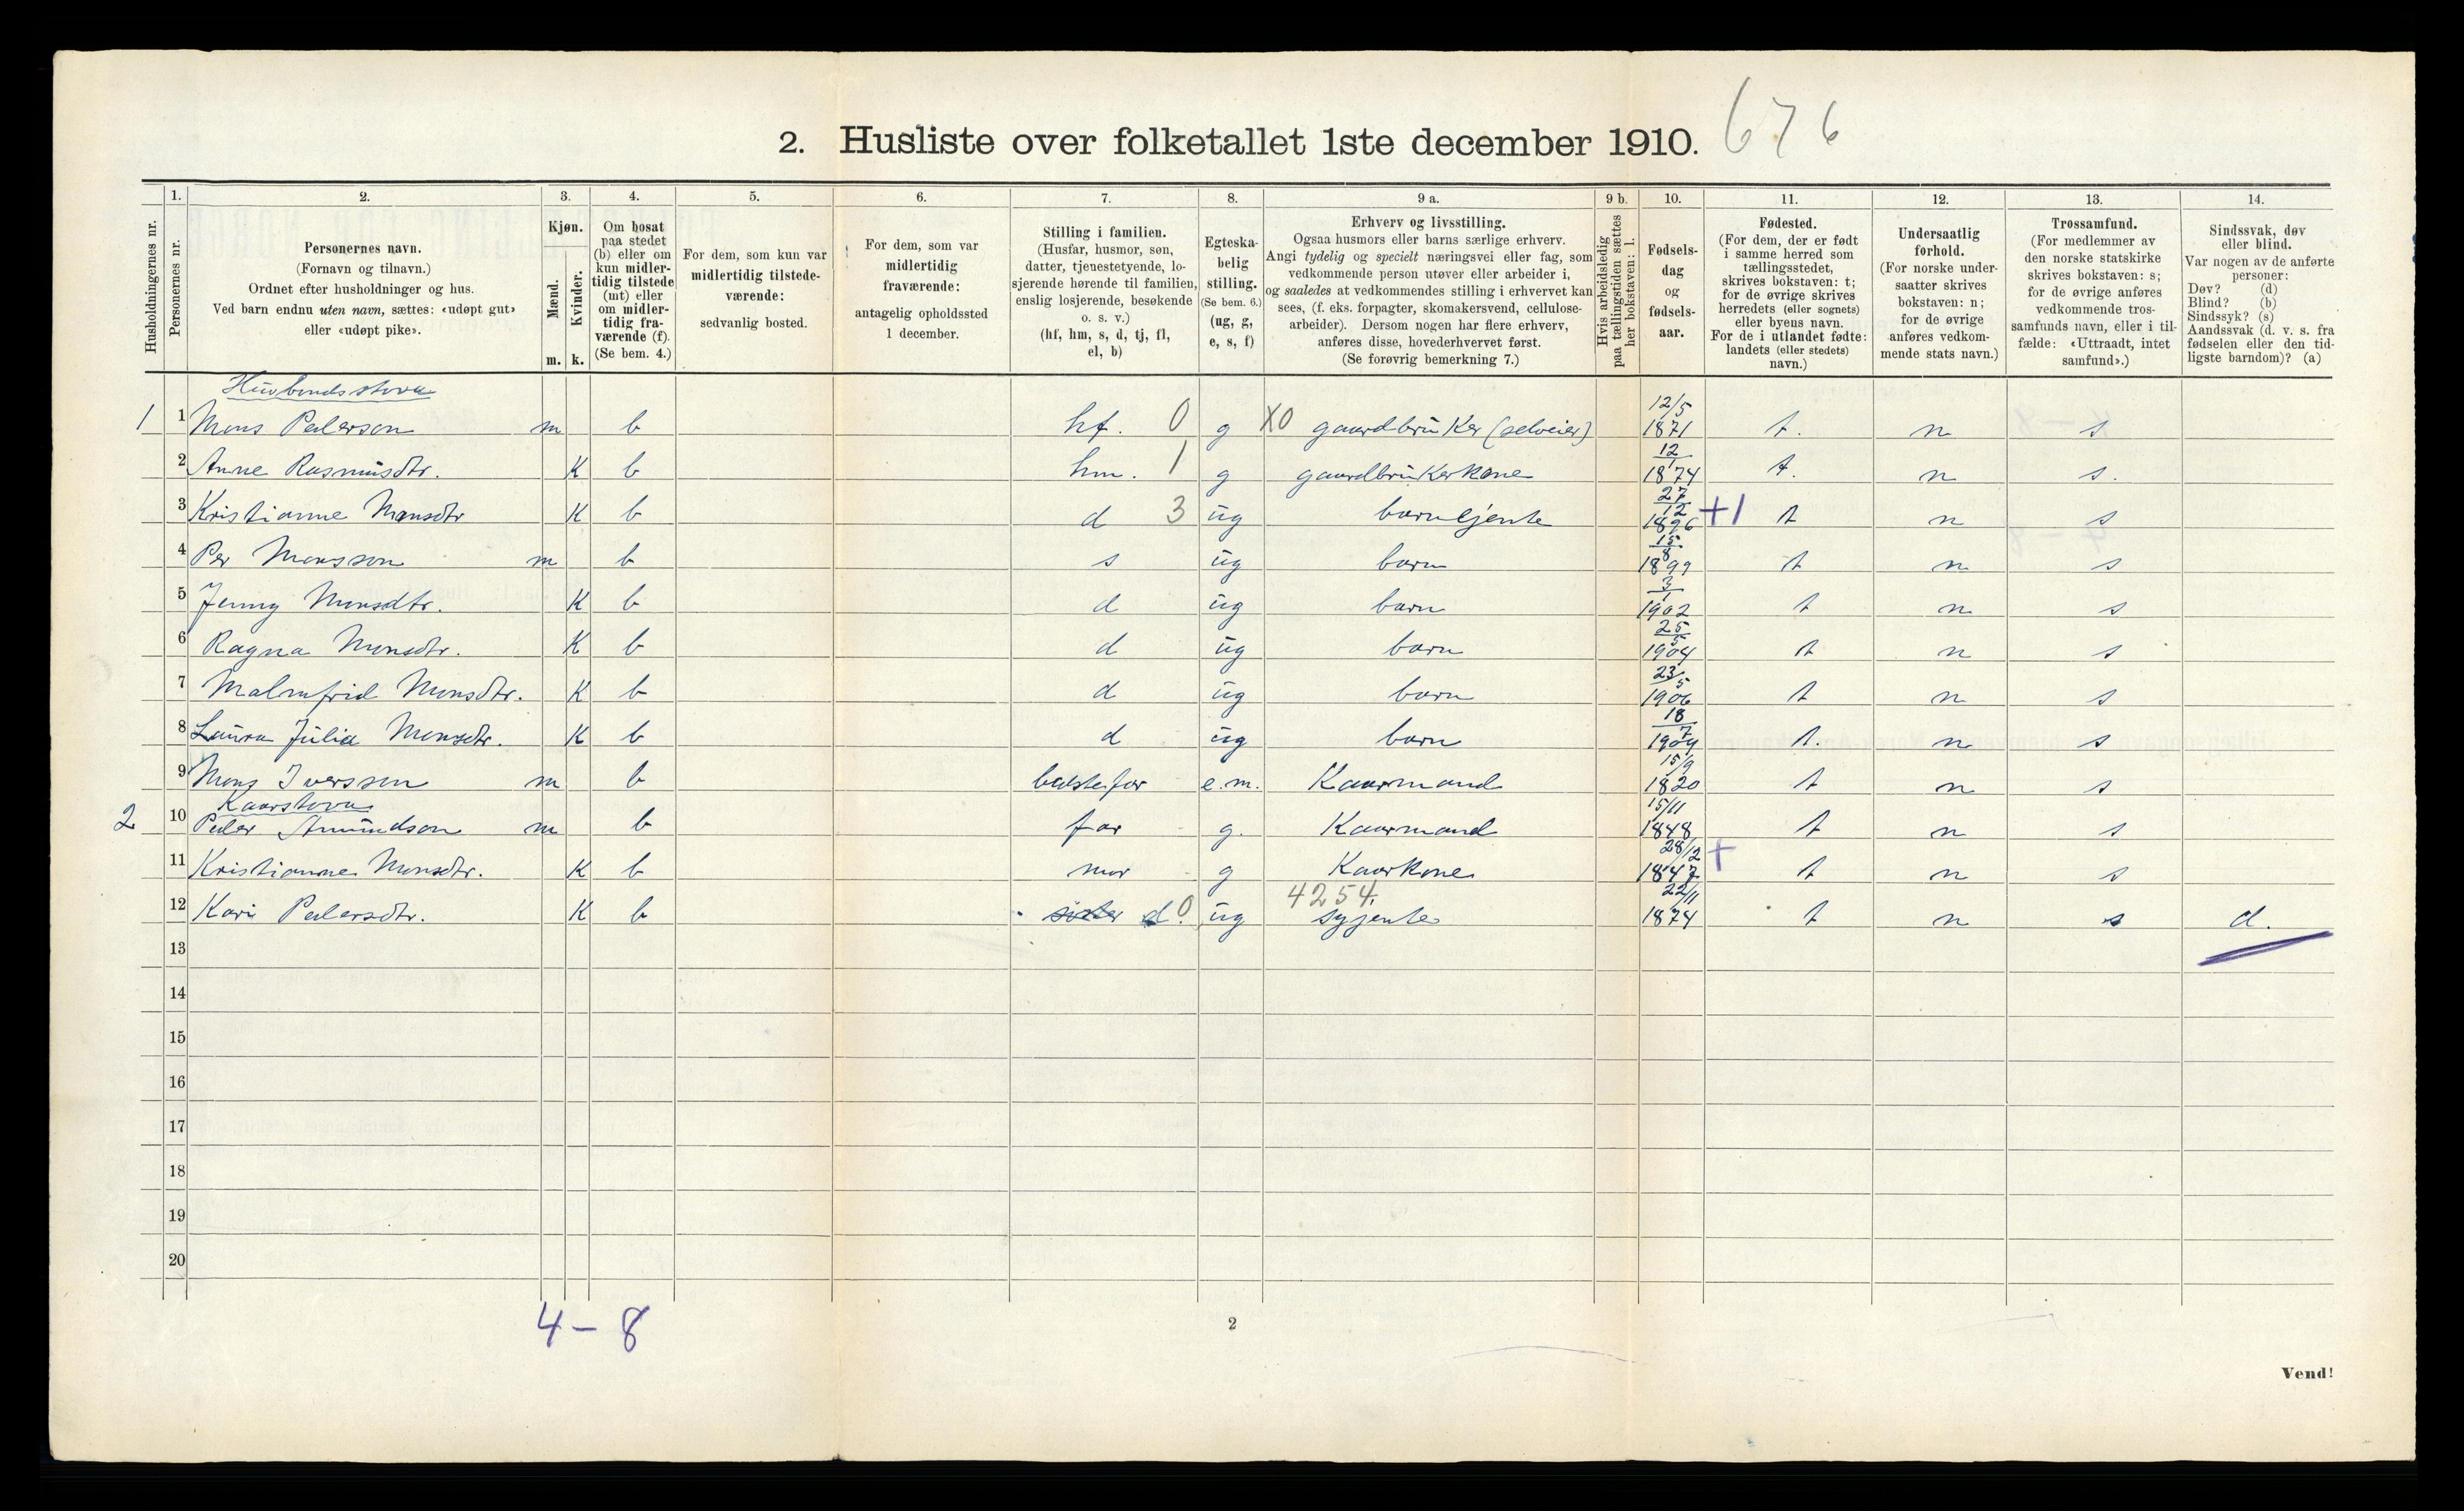 2. Husliste over folketallet 1ste december 1910. 676
Husholdningernes nr.
1.
Personernes nr.
2.
Personernes navn.
(Fornavn og tilnavn.)
Ordnet efter husholdninger og hus.
Ved barn endnu uten navn, sættes: «udøpt gut»
eller «udøpt pike».
3.
Kjøn.
Mænd.
m.
Kvinder.
k.
4.
Om bosat
paa stedet
(b) eller om
kun midler-
tidig tilstede
(mt) eller
om midler-
tidig fra-
værende (f).
(Se bem. 4.)
5.
For dem, som kun var
midlertidig tilstede-
værende:
sedvanlig bosted.
6.
For dem, som var
midlertidig
fraværende:
antagelig opholdssted
1 december.
7.
Stilling i familien.
(Husfar, husmor, søn,
datter, tjenestetyende, lo-
sjerende hørende til familien,
enslig losjerende, besøkende
o. s. v.)
(hf, hm, s, d, tj, fl,
el, b)
8.
Egteska-
belig
stilling.
(Se bem. 6.)
(ug, g,
e, s, f)
9 a.
Erhverv og livsstilling.
Ogsaa husmors eller barns særlige erhverv.
Angi tydelig og specielt næringsvei eller fag, som
vedkommende person utøver eller arbeider i,
og saaledes at vedkommendes stilling i erhvervet kan
sees, (f. eks. forpagter, skomakersvend, cellulose-
arbeider). Dersom nogen har flere erhverv,
anføres disse, hovederhvervet først.
(Se forøvrig bemerkning 7.)
9 b.
Hvis arbeidsledig
paa tællingstiden sættes
her bokstaven: l.
10.
Fødsels-
dag
og
fødsels-
aar.
11.
Fødested.
(For dem, der er født
i samme herred som
tællingsstedet,
skrives bokstaven: t;
for de øvrige skrives
herredets (eller sognets)
eller byens navn.
For de i utlandet fødte:
landets (eller stedets)
navn.)
12.
Undersaatlig
forhold.
(For norske under-
saatter skrives
bokstaven: n;
for de øvrige
anføres vedkom-
mende stats navn.)
13.
Trossamfund.
(For medlemmer av
den norske statskirke
skrives bokstaven: s;
for de øvrige anføres
vedkommende tros-
samfunds navn, eller i til-
fælde: «Uttraadt, intet
samfund».)
14.
Sindssvak, døv
eller blind.
Var nogen av de anførte
personer:
Døv? (d)
Blind? (b)
Sindssyk? (s)
Aandssvak (d. v. s. fra
fødselen eller den tid-
ligste barndom)? (a)
Husbondsstova
1 1 Mons Pederson m b hf. 0 g X0 gaardbruker (selveier) 12/5 1871 t. n s
2 Anne Rasmusdtr. K b hm. 1 g gaardbrukerkone 12/1 1874 t. n s.
3 Kristianne Monsdtr K b d 3 ug barnejente 27/12 1896 +1 t n s
4 Per Monsson m b s ug barn 15/8 1899 t n s
5 Jenny Monsdtr. K b d ug barn 3/1 1902 t n s
6 Ragna Monsdtr. K b d ug barn 25/5 1904 t n s
7 Malmfrid Monsdtr. K b d ug barn 23/5 1906 t n s
8 Laura Julia Monsdtr. K b d ug barn 18/7 1909 t. n s
9 Mons Iversson m b bedstefar e.m. Kaarmand 15/9 1820 t n s
Kaarstova
2 10 Peder Amundson m b far g. Kaarmand 15/11 1848 t n s
11 Kristianne Monsdtr. K b mor g Kaarkone 28/12 1847 + t n s
12 Kari Pedersdtr. K b sister d. 0 ug 4254. syjente 22/11 1874 t n s d.
13
14
15
16
17
18
19
20
4-8
2
Vend!